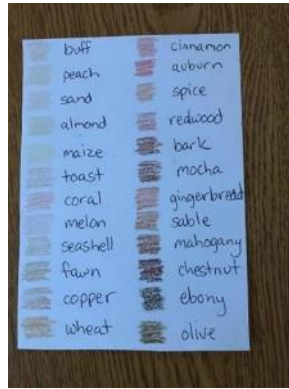 buff
peach
sand
almond
maize
toast
coral
melon
seashell
fawn
copper
wheat
cinnamon
auburn
spice
redwood
bark
mocha
gingerbread
sable
mahogany
chestnut
ebony
olive